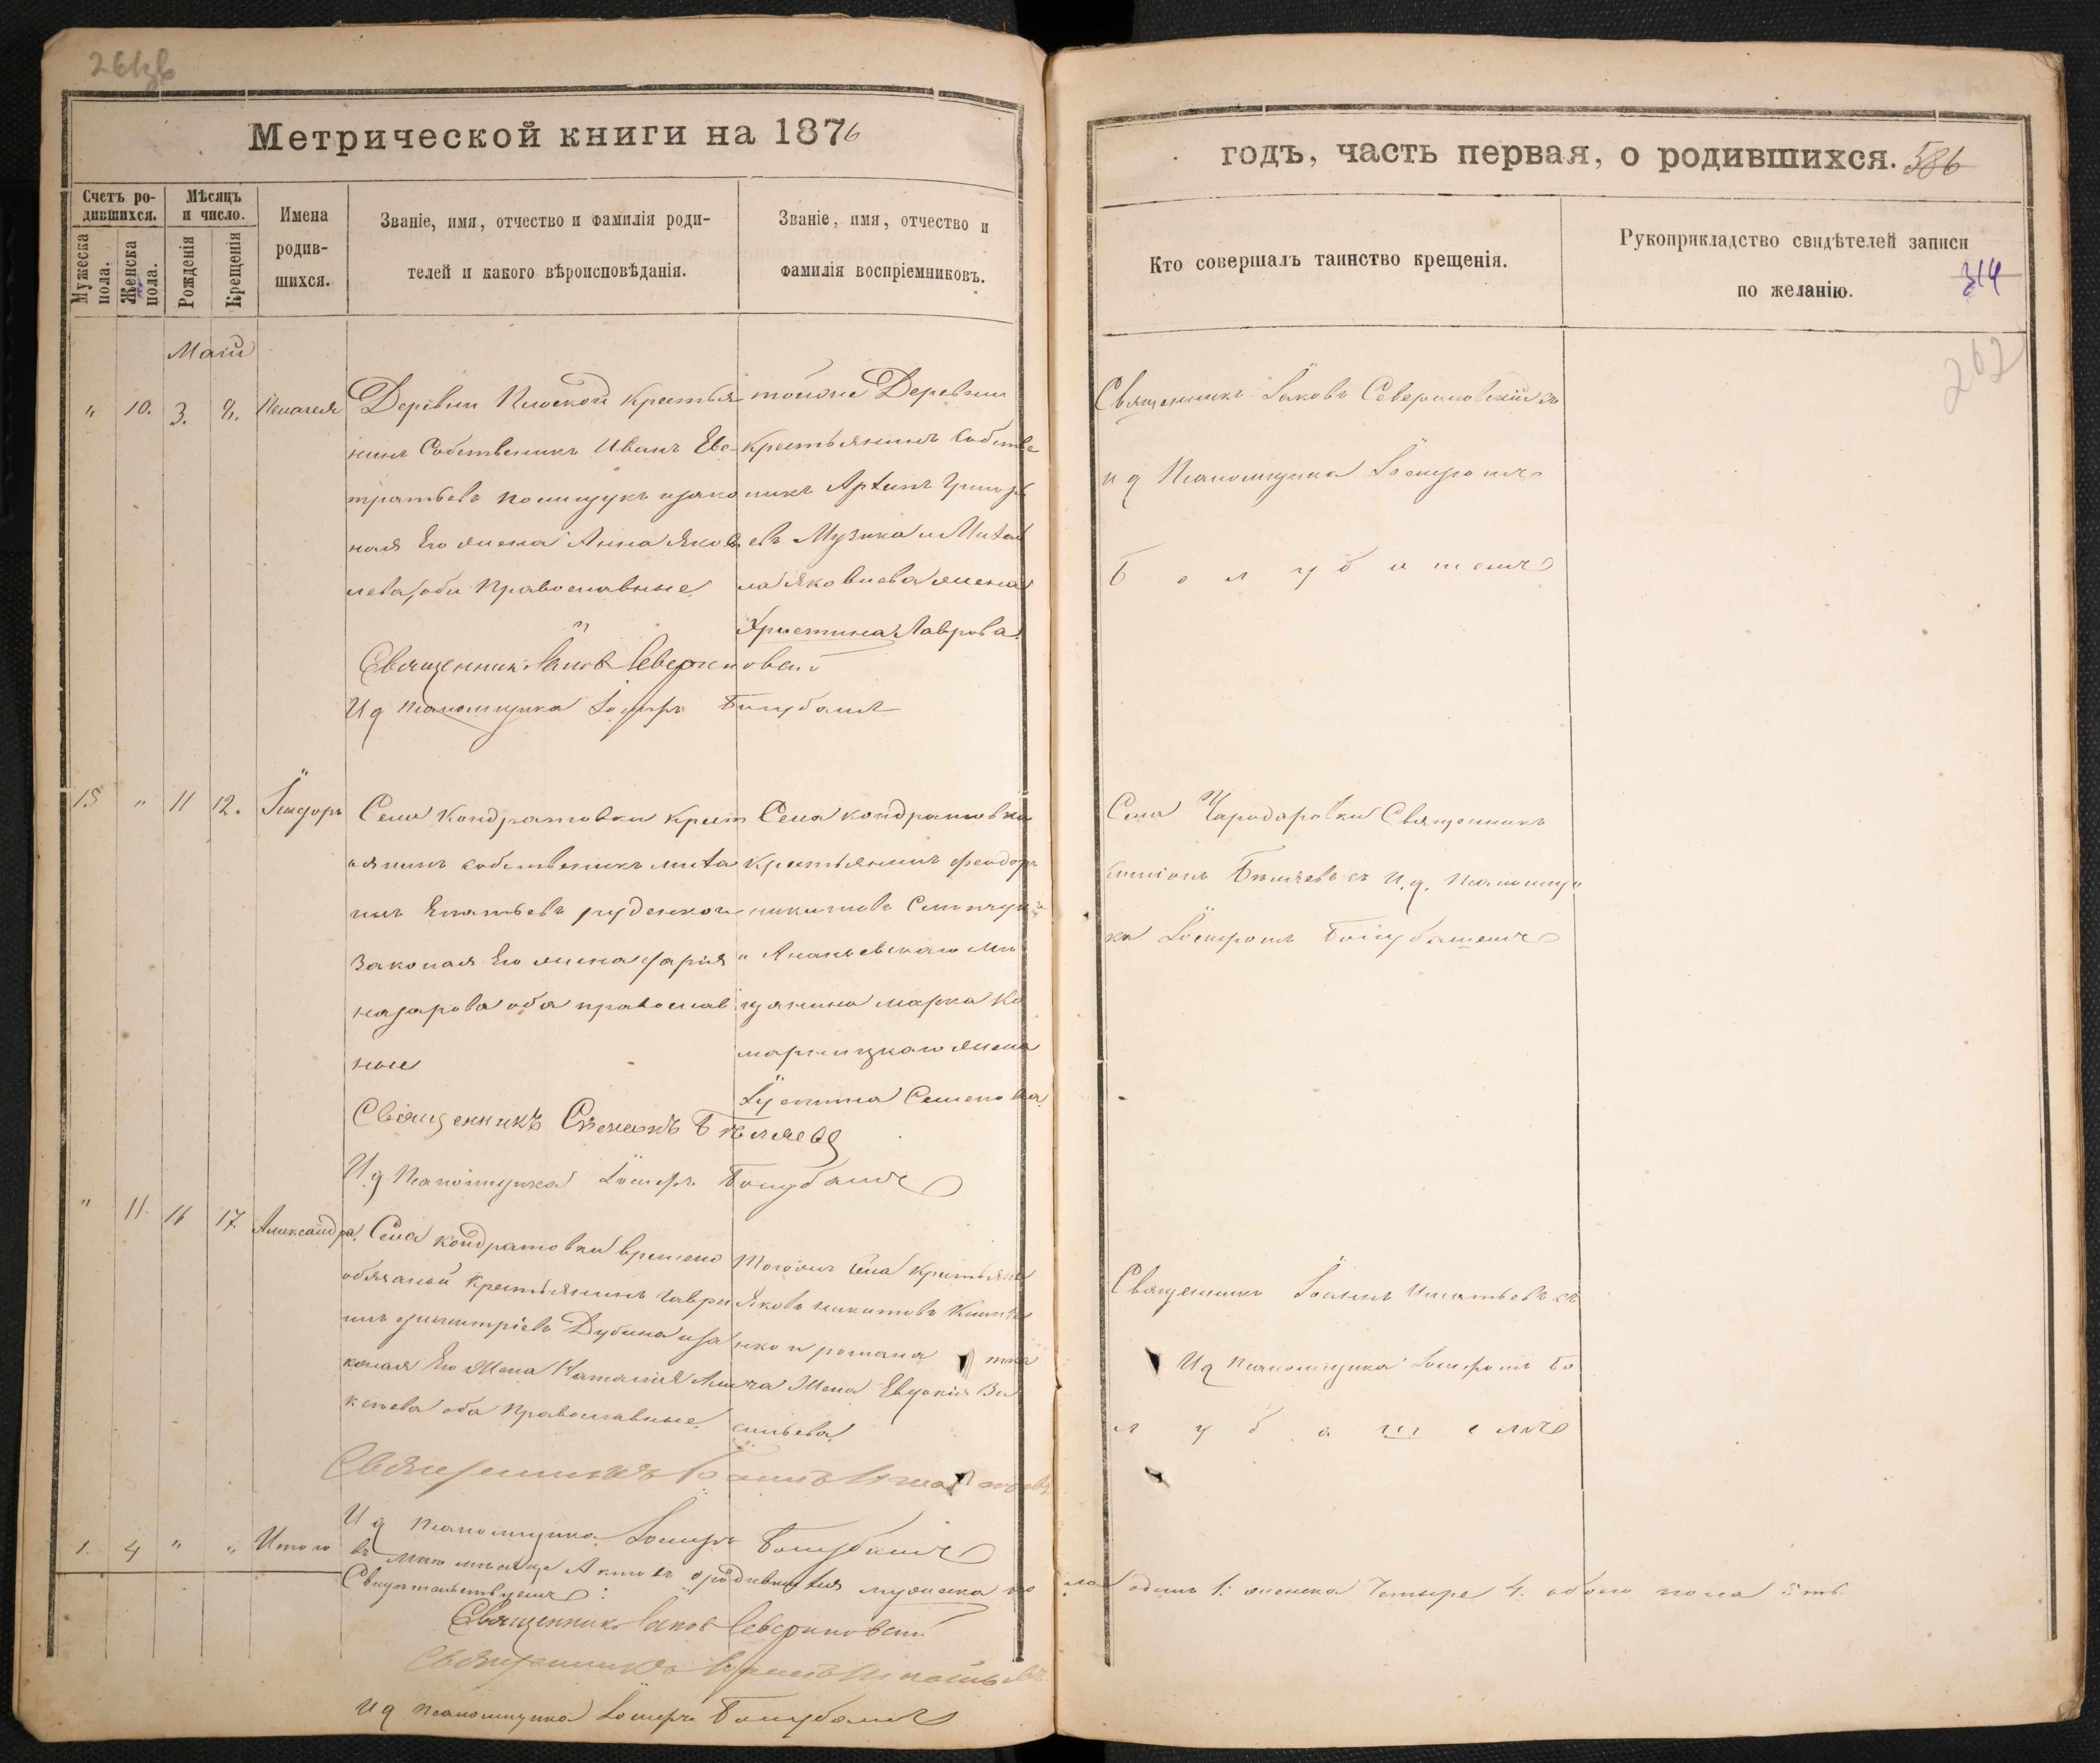 261зв
Метрической книги на 1876
Счетъ ро-
дившихся.
Мѣсяцъ
и число.
Мужеска
пола.
Женска
пола.
Рожденія
Крещенія
Имена
родив-
шихся.
Званіе, имя, отчество и фамилія роди-
телей и какого вѣроисповѣданія.
Званіе, имя, отчество и
фамилія воспріемниковъ.
Маій
" 10. 3. 9. Пелагея
Деревни Плоской Крестья
нинъ Собственникъ Иванъ Евс-
тратьевъ Полищукъ и зако
ная Его жена Анна Яков
лева, оби Православные
тойже Деревни
Крестьянинъ Собстве
никъ Архипъ Григорь
евъ Музика и Михаи
ла Яковлева жена
Христина Лаврова.
Священник Іаков Севериновский
И д Псаломщика Іосифъ Болубашъ
15 " 11 12. Ісидоръ
Села Кондратовки Крест
янинъ собственикъ миха
илъ Игнатьевъ руденко и
Законая Его жена дарія
назарова оба православ
ные
Села кондратовки
Крестьянинъ феодоръ
никитовъ
и Ананьевскаго Ме
щанина марка Ко
марницкаго жена
Іустина Семенова
Священникъ Симеонъ Бѣляевъ
И д Псаломщика Іосифъ Болубашъ
" 11. 16 17. Александра.
Села кондратовки времено
обязаный Крестьянинъ Гаври
илъ димитріевъ Дубина и за
коная Его Жена Наталия Але
ксеева оба Православные.
Тогоже Села Крестьяне
Яковъ никитовъ
нко и романа
Жена Евдокія Ва
сильева.
Священникъ Іоаннъ Игнатьевъ
И д Псаломщика Іосифъ Болубашъ
1. 4 " " Итого
въ маю мѣсяце Актовъ о родившихся мужеска по
Свидѣтельствуемъ:
Священникъ Іаков Севериновский
Священникъ Іоаннъ Игнатьевъ
И д Псаломщика Іосифъ Болубашъ
годъ, часть первая, о родившихся. 586
Кто совершалъ таинство крещенія.
Рукоприкладство свидѣтелей записи
по желанію.
314
262
Священникъ Іаковъ Севериновскій зъ
и д Псаломщика Іосифомъ
Болубашемъ
Села Чародаровки Священникъ
Симіонъ Бѣляевъ съ И. д. Псаломщи
ка Іосифомъ Болубашемъ
Священникъ Іоаннъ Игнатьевъ съ
И д Псаломщика Іосифомъ Бо
лубашемъ
ла одинъ 1. женска Четыре 4. обоего пола 5ть